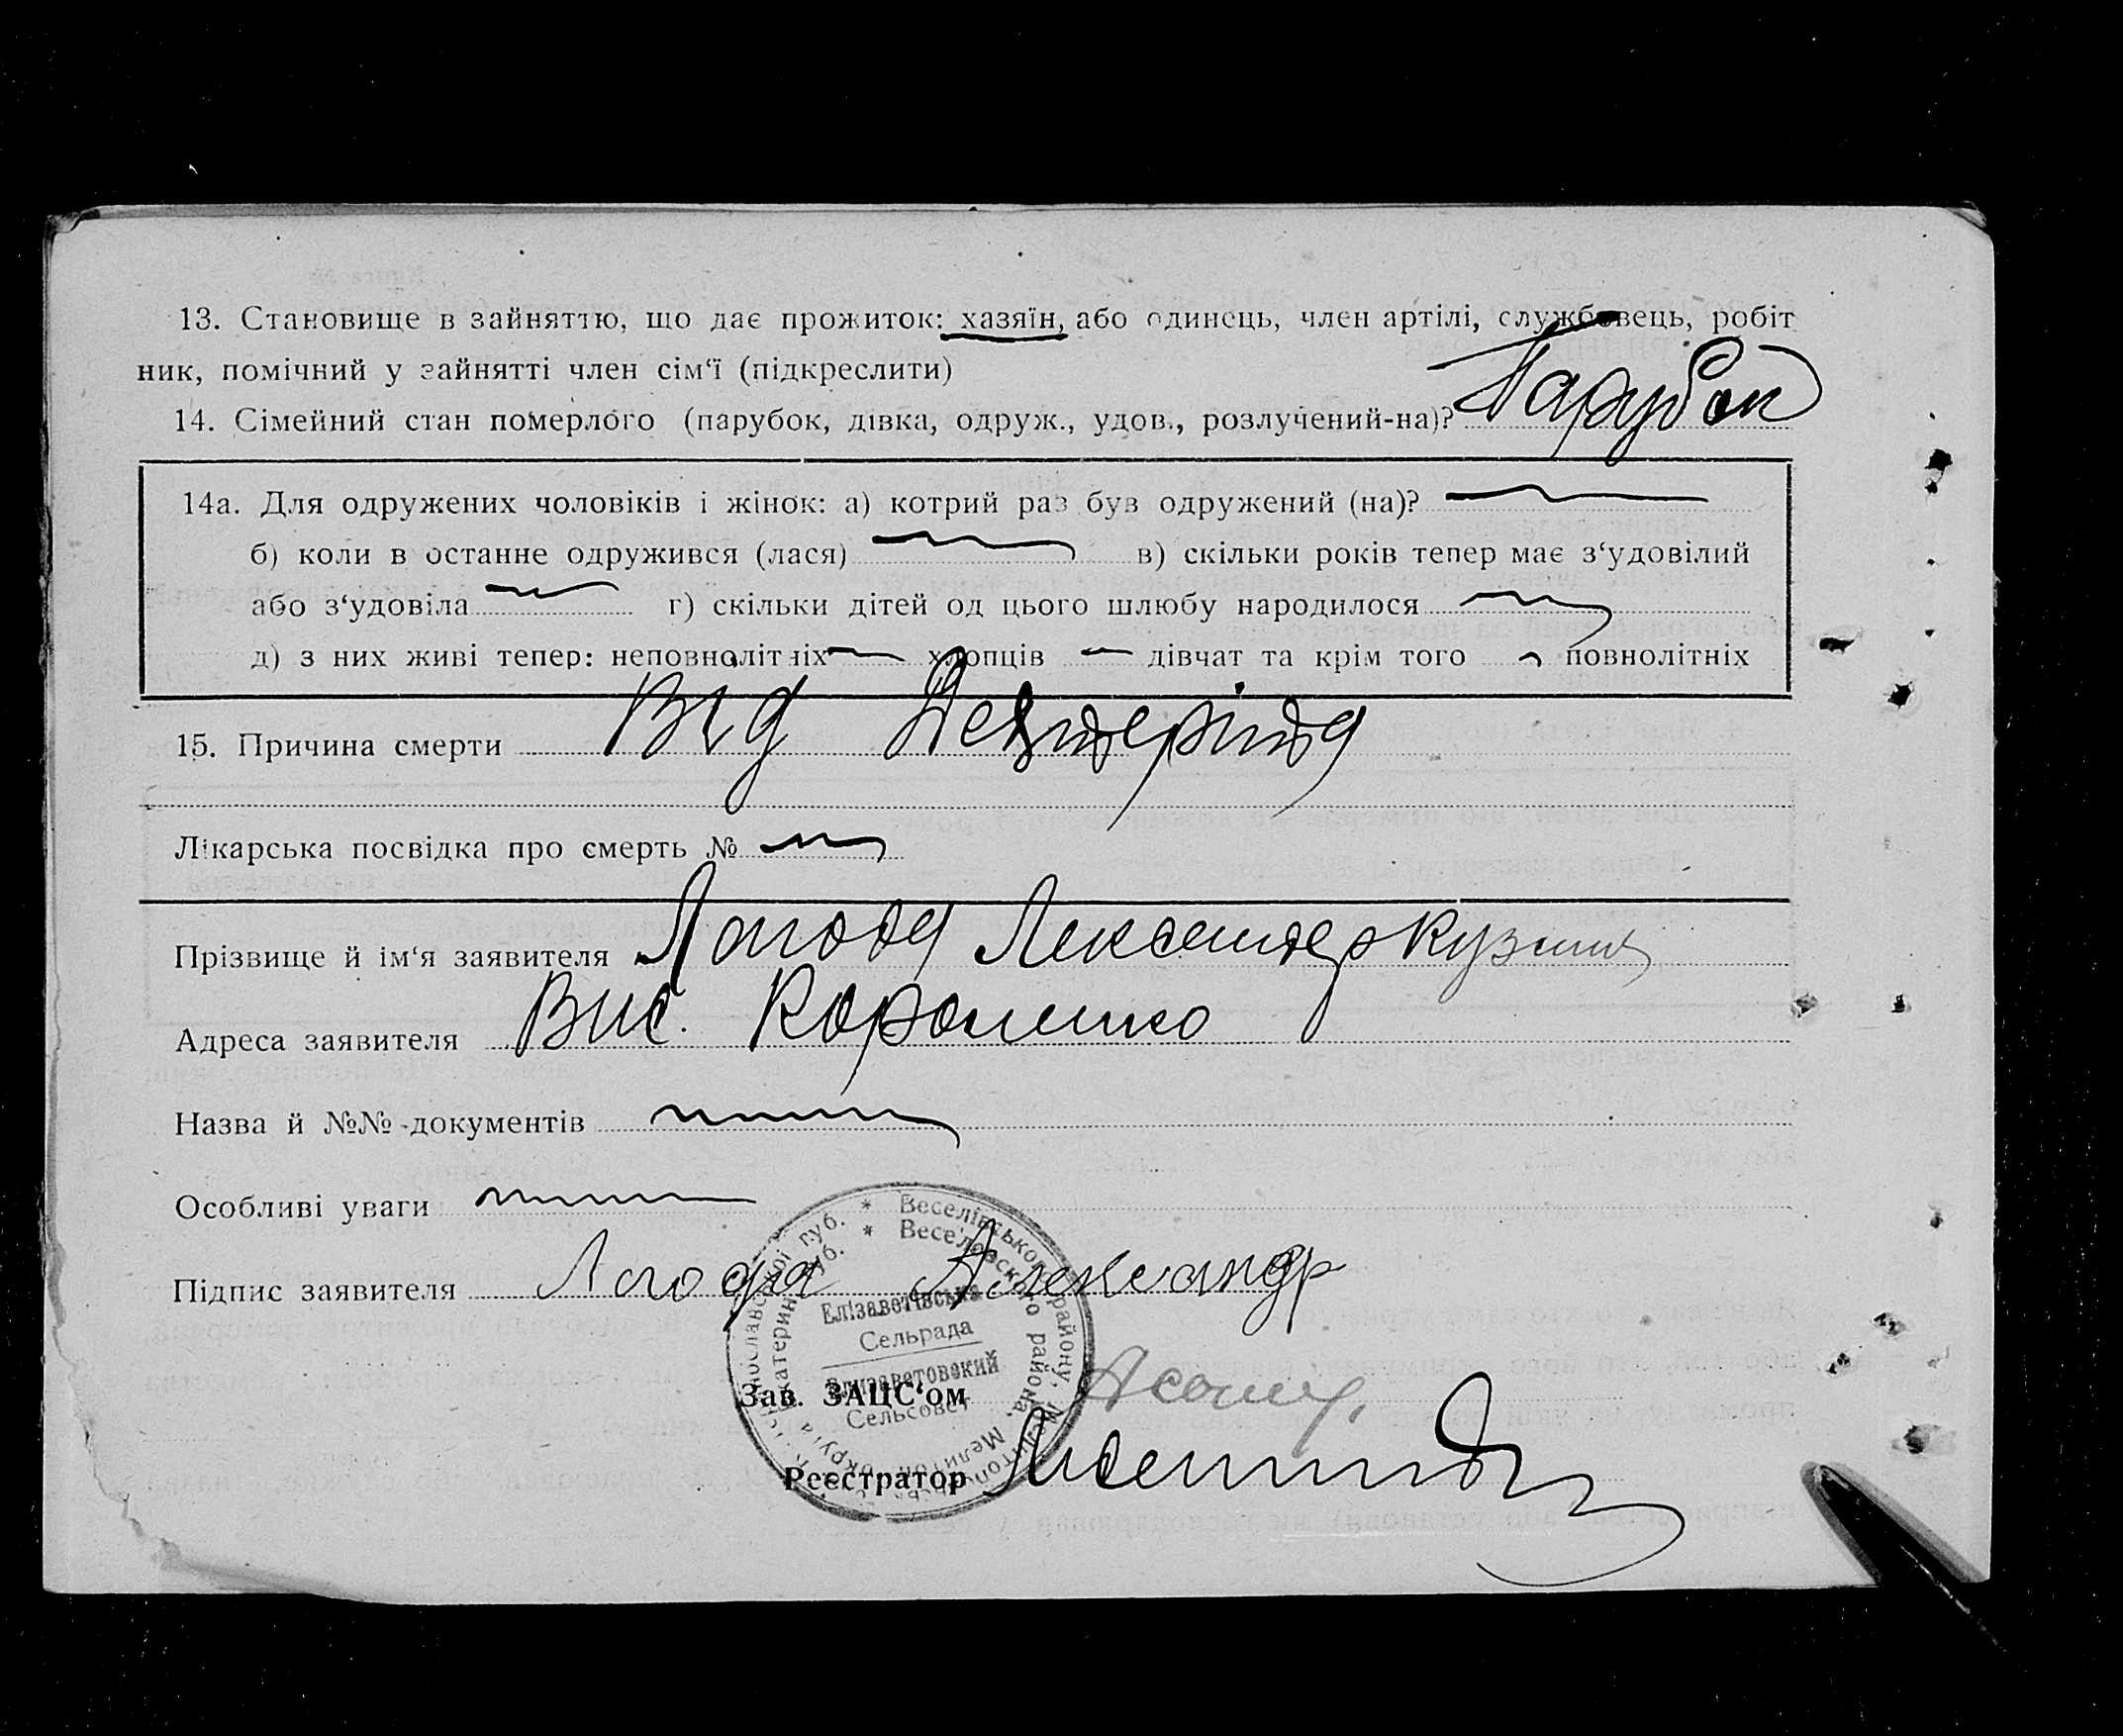 13. Становище в зайняттю, що дає прожиток: хазяїн, або одинець, член артілі, службовець, робіт
ник, помічний у зайнятті член сім‘ї (підкреслити)
14. Сімейний стан померлого (парубок, дівка, одруж., удов., розлучений-на)? Парубок
14а. Для одружених чоловіків і жінок: а) котрий раз був одружений (на)?
б) коли в останне одружився (лася) в) скільки років тепер має з‘удовілий
або з‘удовіла г) скільки дітей од цього шлюбу народилося
д) з них живі тепер: неповнолітніх хлопців дівчат та крім того повнолітніх
15. Причина смерти Від
Лікарська посвідка про смерть №
Прізвище й ім‘я заявителя Лагода
Адреса заявителя Вис.
Назва й №№ документів
Особливі уваги
Підпис заявителя Лагода Александр
* Веселівського району,
* Веселовского района,
Елізаветівська
Сельрада
Елизаветовский
Сельсовет
Зав. ЗАЦС‘ом
Реєстратор